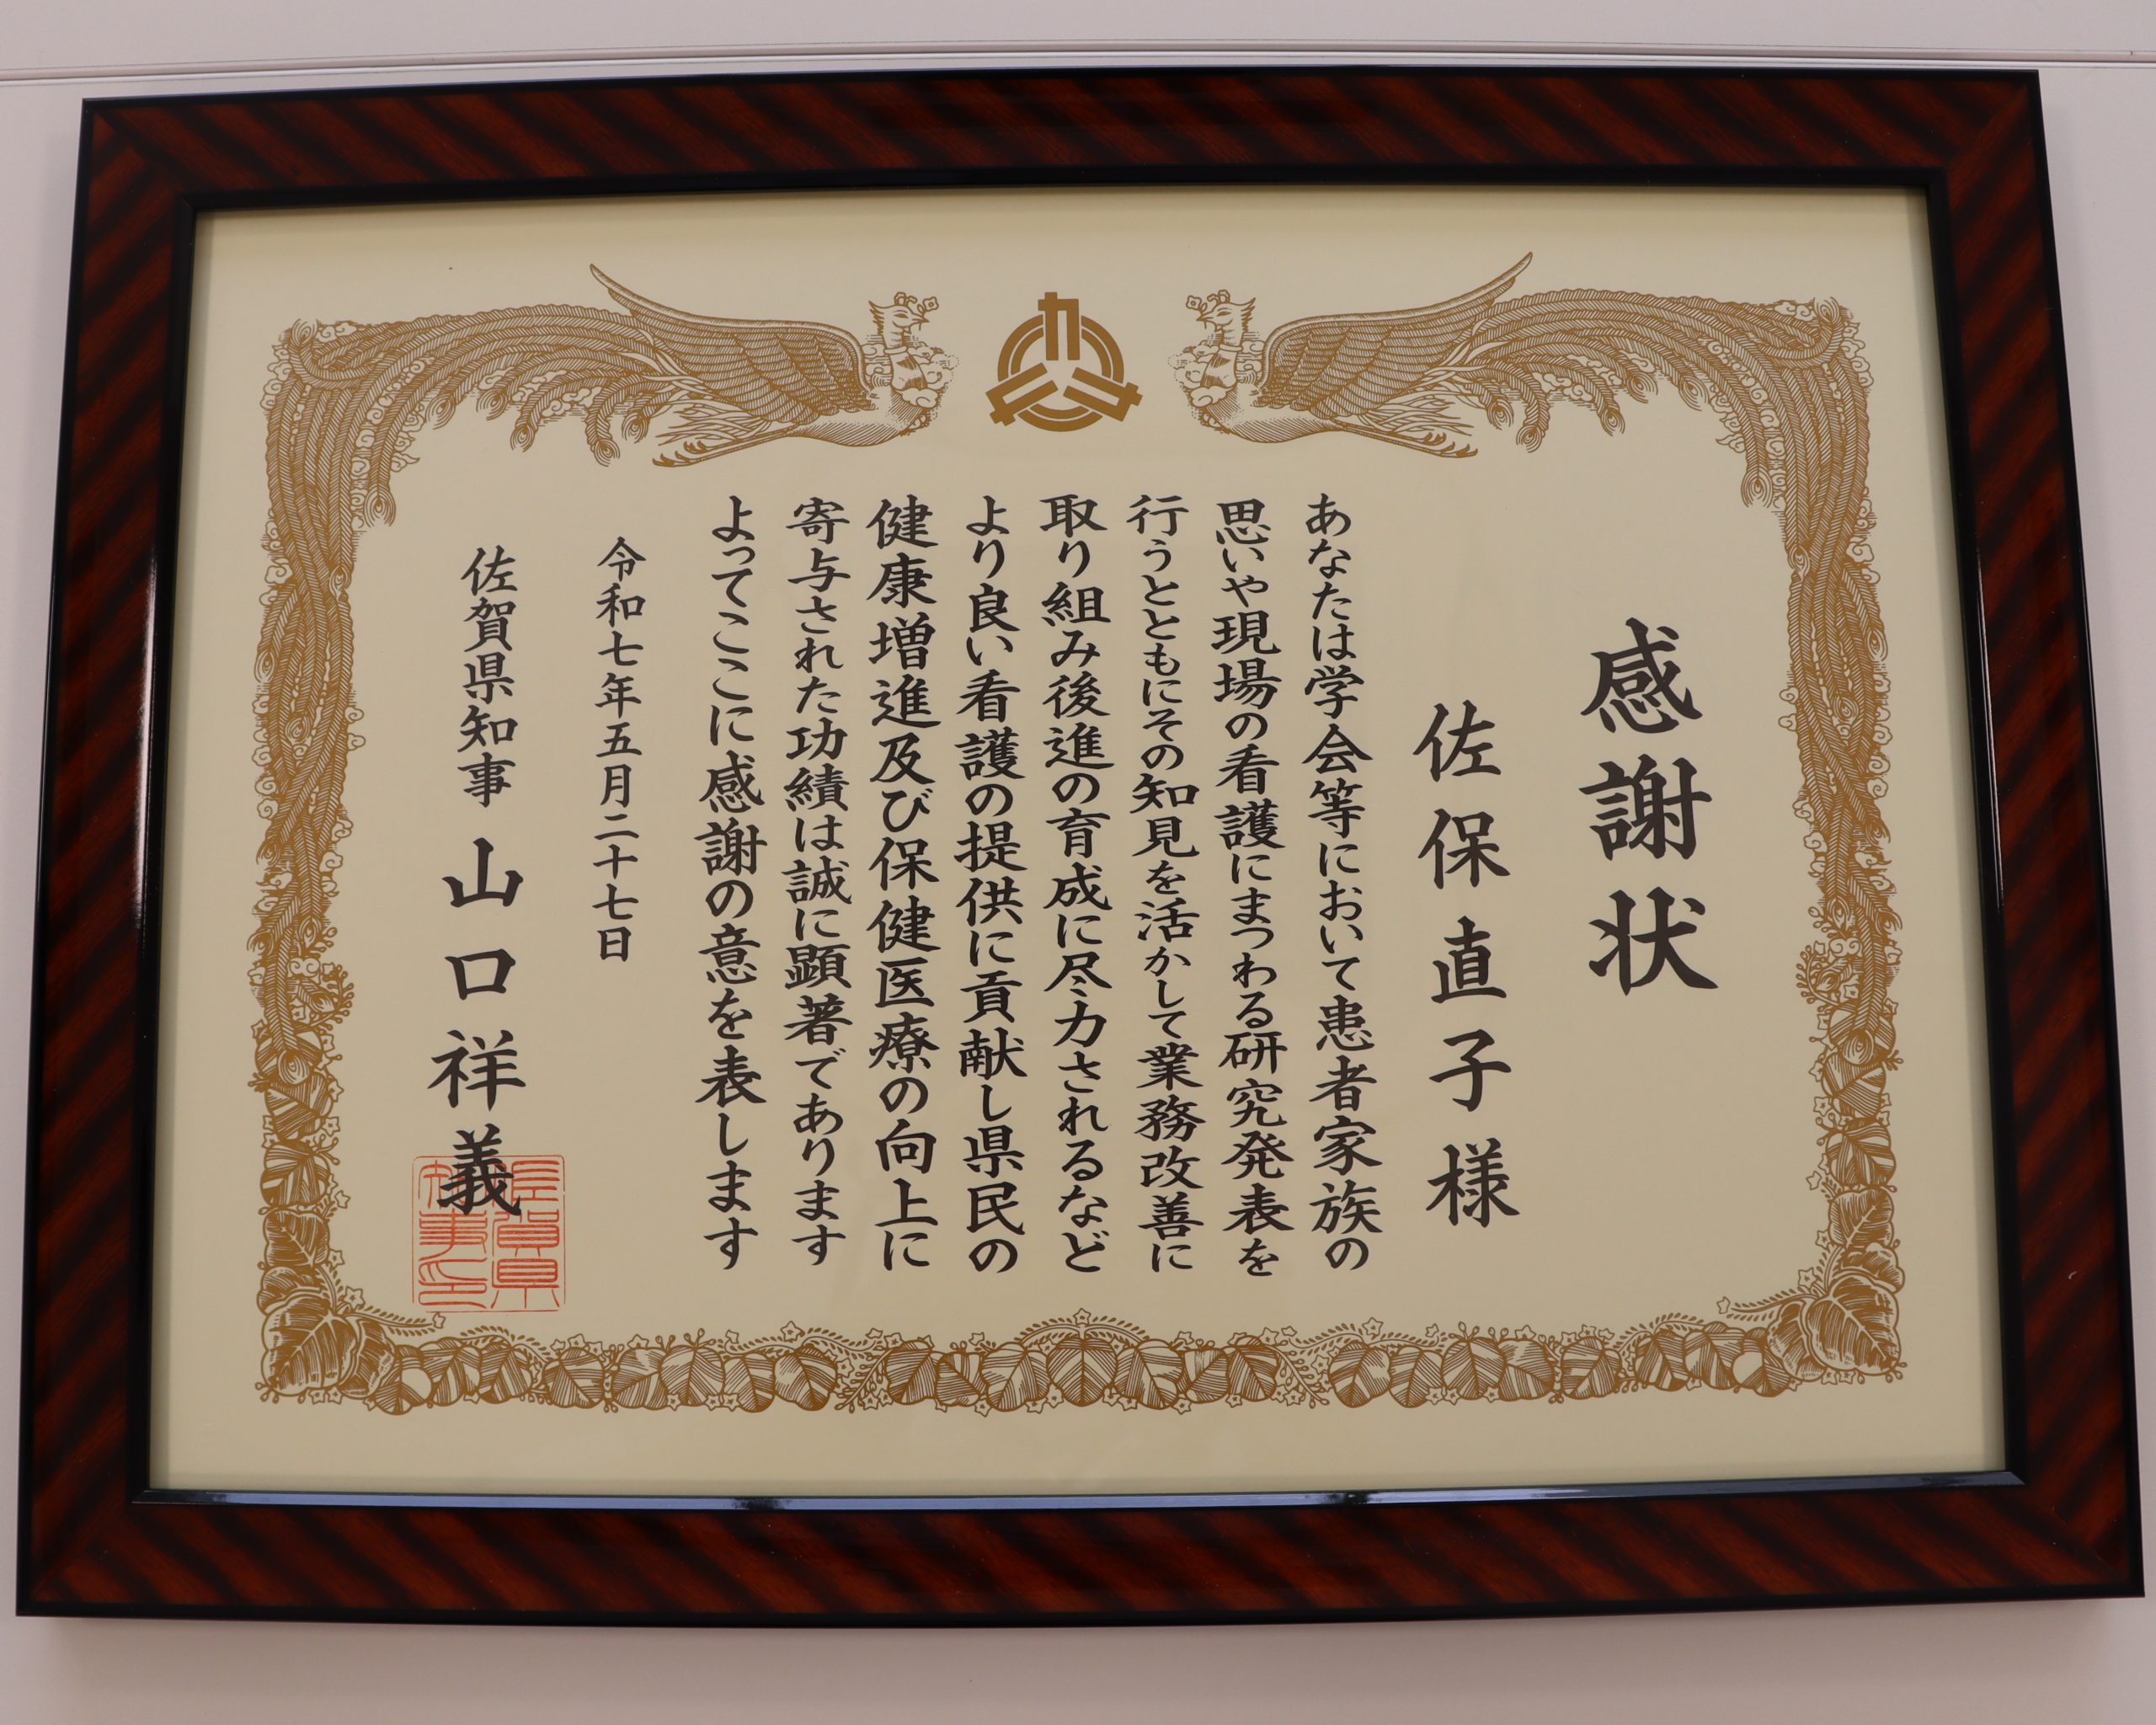 感謝状
佐保直子様
あなたは学会等において患者家族の
思いや現場の看護にまつわる研究発表を
行うとともにその知見を活かして業務改善に
取り組み後進の育成に尽力されるなど
より良い看護の提供に貢献し県民の
健康増進及び保健医療の向上に
寄与された功績は誠に顕著であります
よってここに感謝の意を表します
令和七年五月二十七日
佐賀県知事 山口祥義
佐賀県
知事印